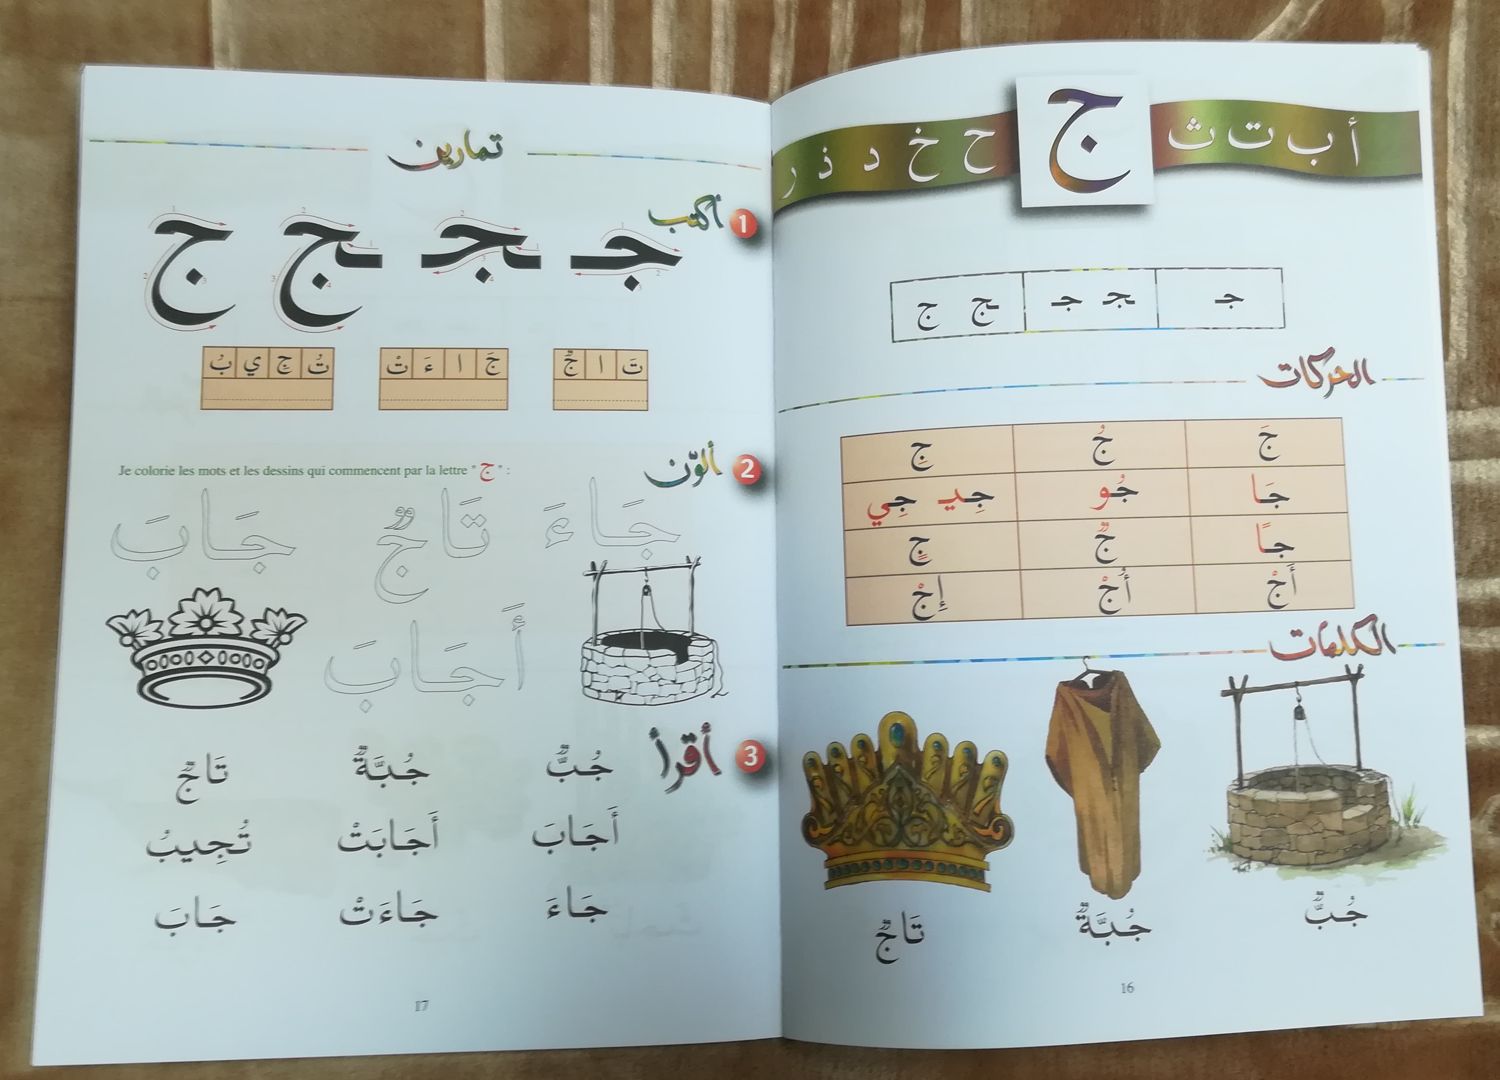 أ ب ت ث ج ح خ د ذ ر
جـ ـجـ جـ ـج ج
الحركات
جَ جُ جِ
جَا جُو جِيـ جِي
جًا جٌ جٍ
أَجْ أُجْ إِجْ
الكلمات
جُبٌّ جُبَّةٌ تَاجٌ
16
تمارين
1 أكتب
جـ ـجـ ـج ج
تَ ا جٌ
جَ ا ءَ تْ
تُ جِ ي بُ
2 ألوّن
Je colorie les mots et les dessins qui commencent par la lettre " ج " :
جَاءَ تَاجٌ جَابَ
أَجَابَ
3 أقرأ
جُبٌّ جُبَّةٌ تَاجٌ
أَجَابَ أَجَابَتْ تُجِيبُ
جَاءَ جَاءَتْ جَابَ
17